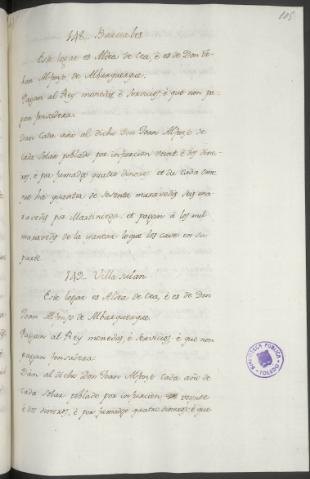 105
148.. Bañuales
Este logar es Aldea de Cea, é es de Don Jo-
han Alfonso de Alburquerque.
Pagan al Rey monedas, é servicios, é que non pa-
gan fonsadera.
Dan cada año al dicho Don Joan Alfonso de
cada solar poblado por infurcion veint é dos dine-
ros, é por fumadgo quatro dineros et de cada
que ha quantia de sesenta maravedis seis ma-
ravedis por Martiniega. et pagan á los mil
maravedis de la yantar lo que les cave en su
parte.
149.. Villa
Este logar es Aldea de Cea, é es de Don
Joan Alfonso de Alburquerque.
Pagan al Rey monedas, é servicios, é que non
pagan fonsadera.
Dan al dicho Don Joan Alfonso cada año de
cada solar poblado por infurcion veinte
é dos dineros, é por fumadgo quatro dineros é que
BIBLIOTECA PUBLICA
TOLEDO